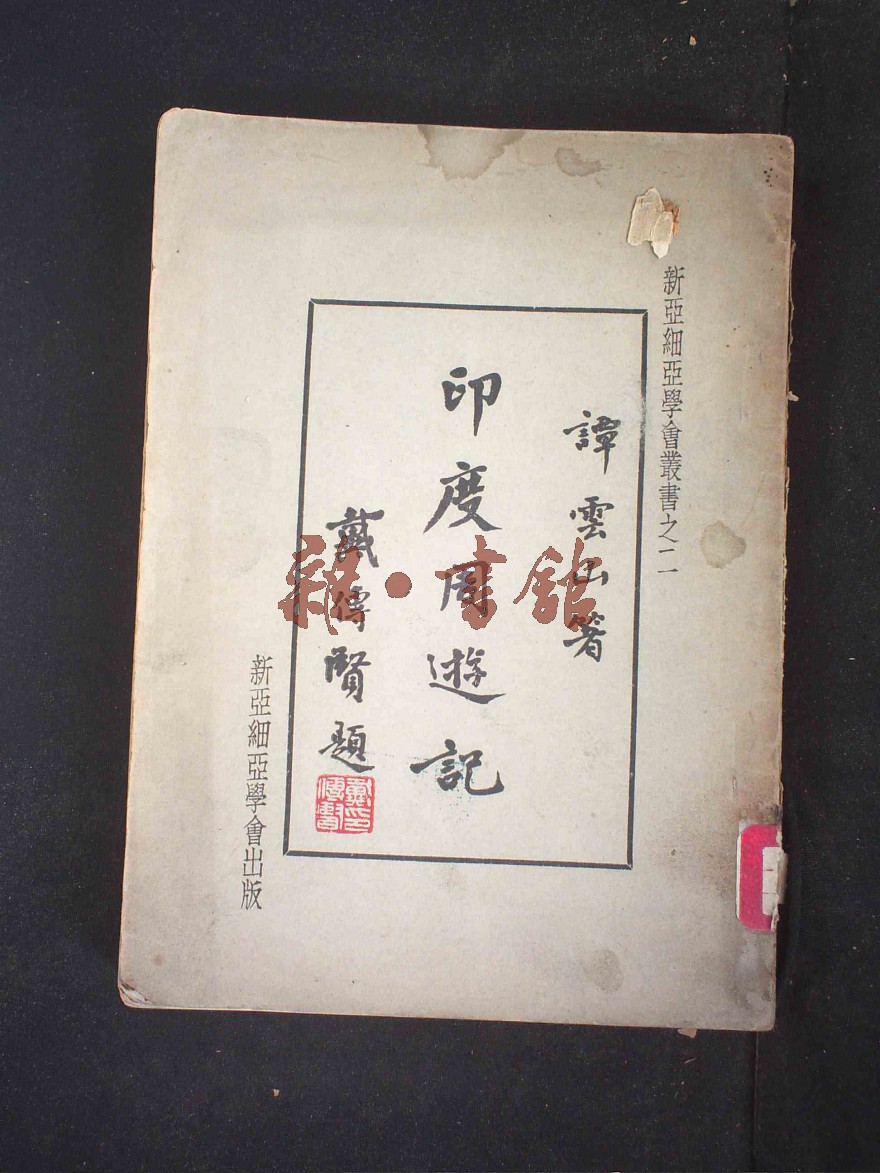 新亞細亞學會叢書之二
譚雲山著
印度周遊記
戴傳賢題
戴傳賢印
新亞細亞學會出版
雜·書館